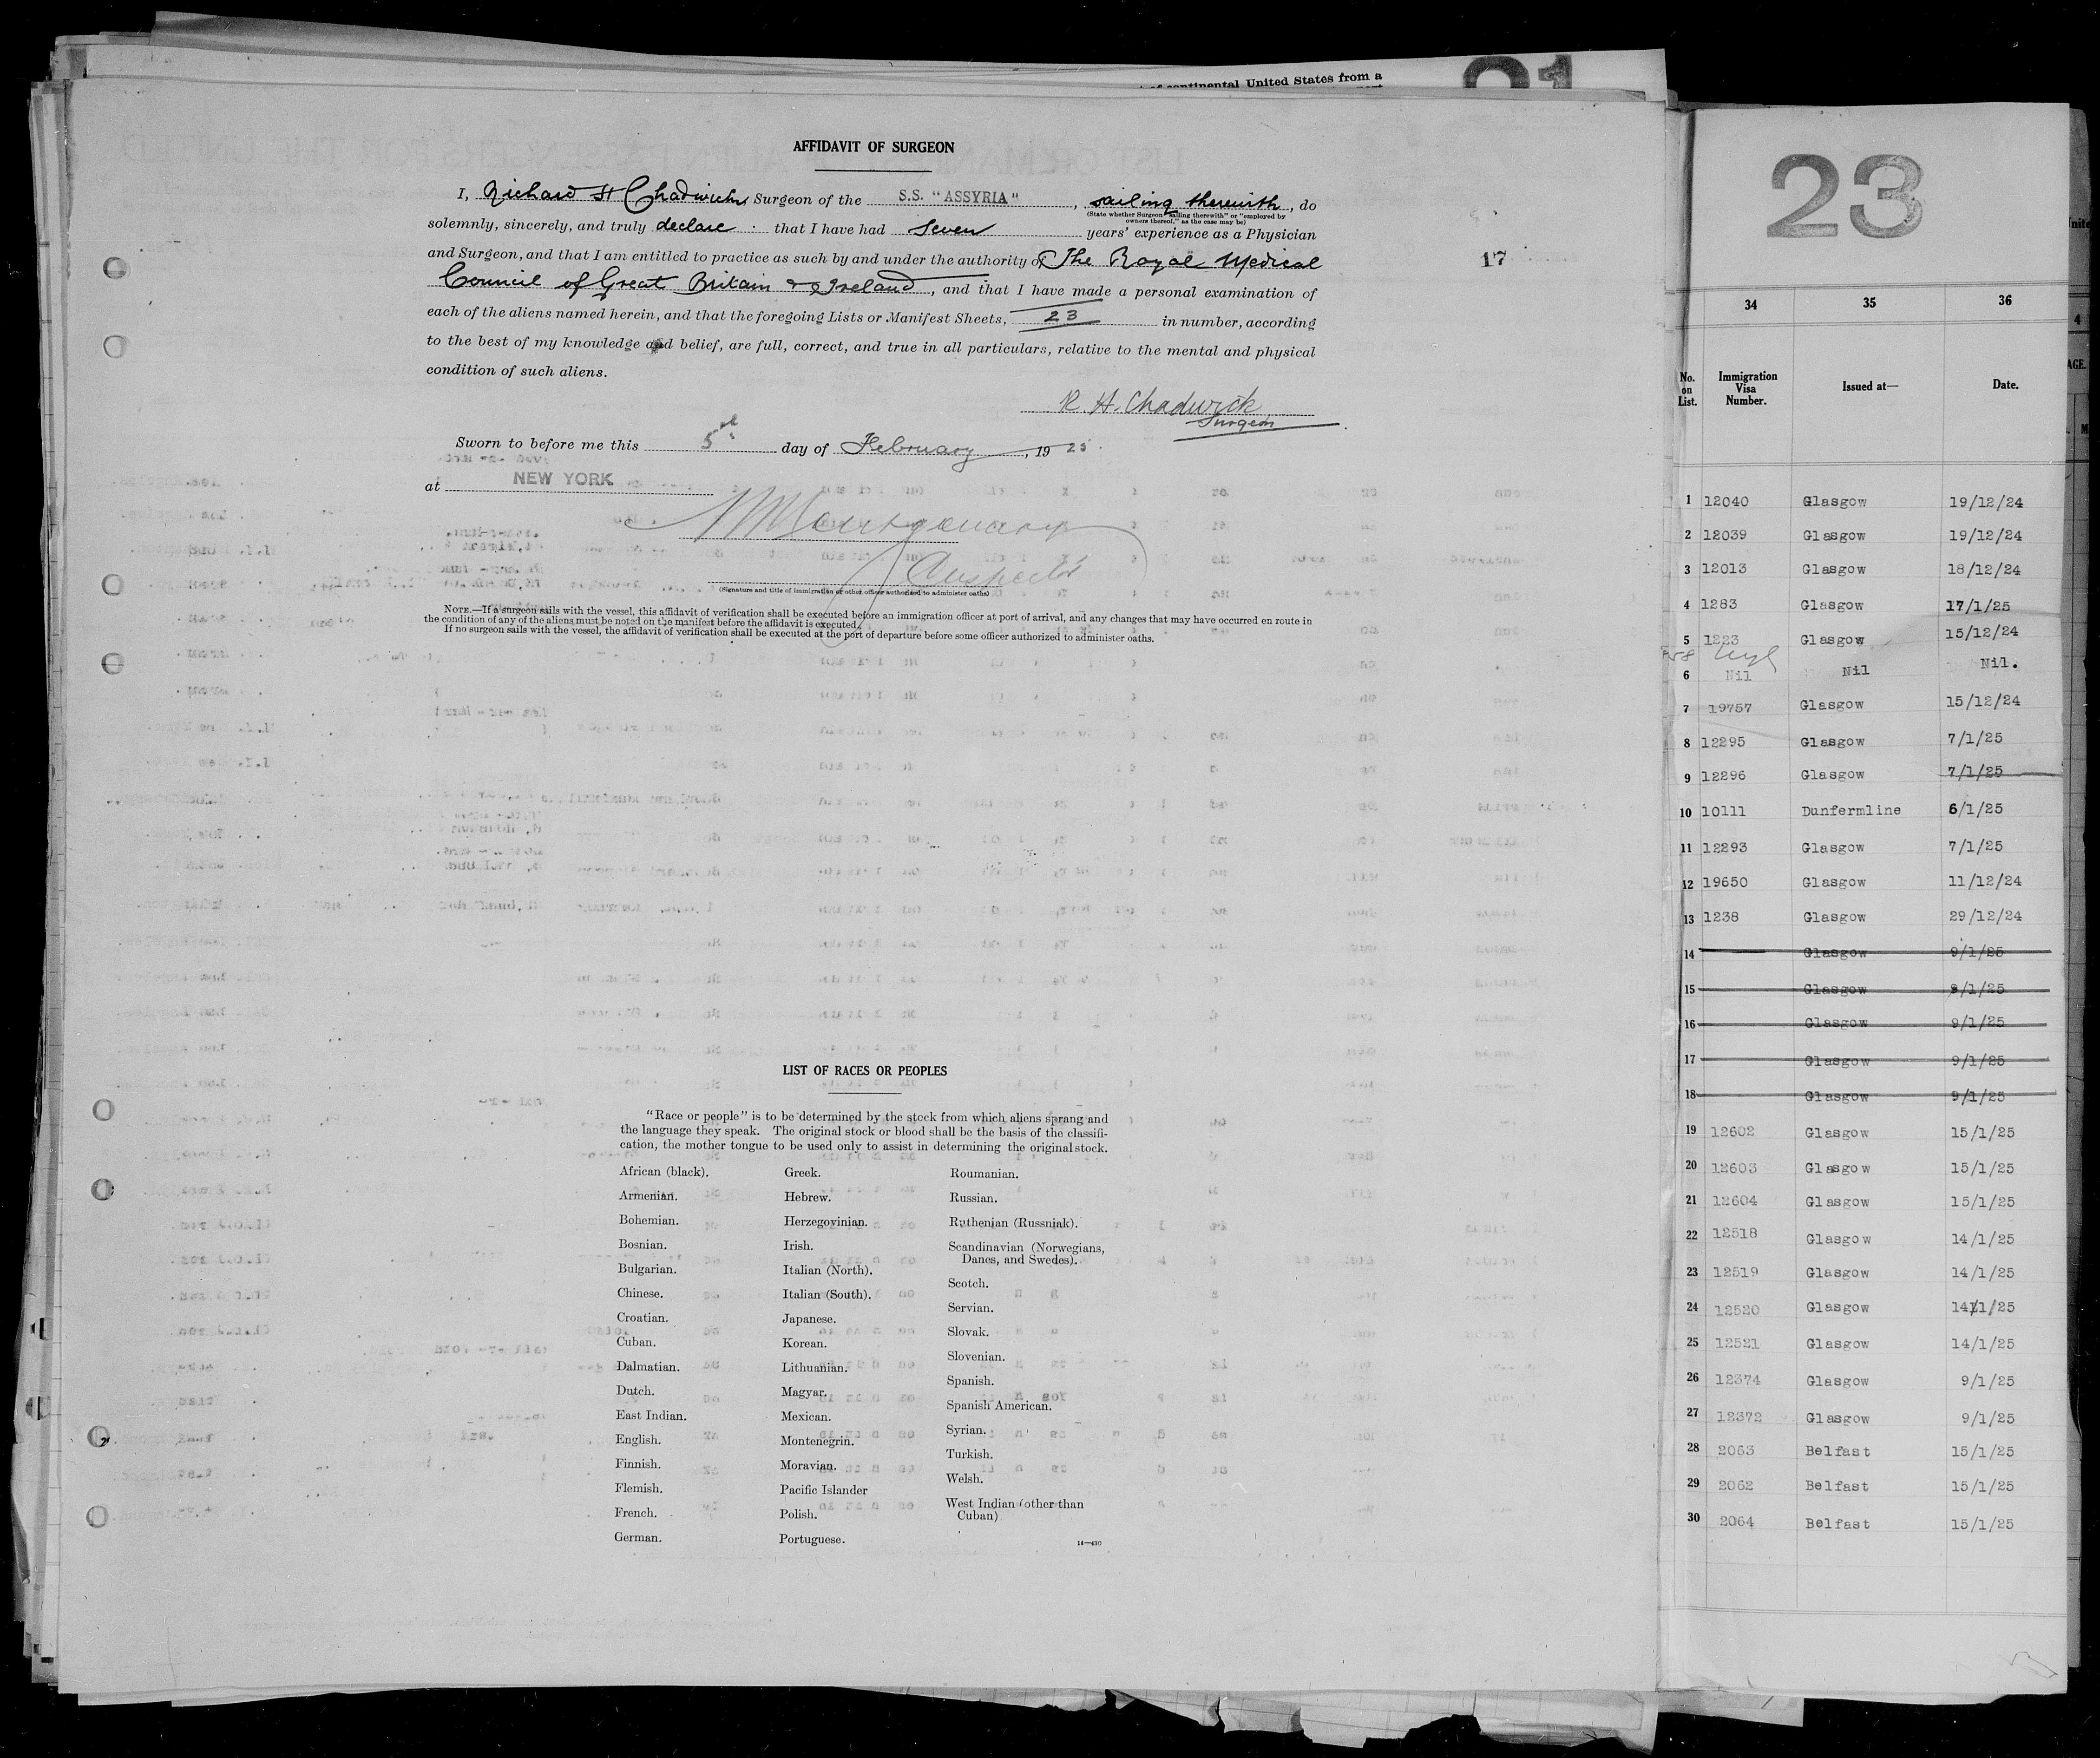 of continental United States from a
21
AFFIDAVIT OF SURGEON
I, Richard H Chadwick, Surgeon of the S.S. "ASSYRIA", sailing therewith, do
(State whether Surgeon "sailing therewith" or "employed by
owners thereof," as the case may be)
solemnly, sincerely, and truly declare that I have had Seven years' experience as a Physician
and Surgeon, and that I am entitled to practice as such by and under the authority of The Royal Medical
Council of Great Britain & Ireland, and that I have made a personal examination of
each of the aliens named herein, and that the foregoing Lists or Manifest Sheets, 23 in number, according
to the best of my knowledge and belief, are full, correct, and true in all particulars, relative to the mental and physical
condition of such aliens.
R H. Chadwick
Surgeon
Sworn to before me this 5th day of February, 1925.
at NEW YORK
(Signature and title of immigration or other officer authorized to administer oaths)
NOTE.—If a surgeon sails with the vessel, this affidavit of verification shall be executed before an immigration officer at port of arrival, and any changes that may have occurred en route in
the condition of any of the aliens must be noted on the manifest before the affidavit is executed.
If no surgeon sails with the vessel, the affidavit of verification shall be executed at the port of departure before some officer authorized to administer oaths.
LIST OF RACES OR PEOPLES
"Race or people" is to be determined by the stock from which aliens sprang and
the language they speak. The original stock or blood shall be the basis of the classifi-
cation, the mother tongue to be used only to assist in determining the original stock.
African (black).
Armenian.
Bohemian.
Bosnian.
Bulgarian.
Chinese.
Croatian.
Cuban.
Dalmatian.
Dutch.
East Indian.
English.
Finnish.
Flemish.
French.
German.
Greek.
Hebrew.
Herzegovinian.
Irish.
Italian (North).
Italian (South).
Japanese.
Korean.
Lithuanian.
Magyar.
Mexican.
Montenegrin.
Moravian.
Pacific Islander
Polish.
Portuguese.
Roumanian.
Russian.
Ruthenian (Russniak).
Scandinavian (Norwegians,
Danes, and Swedes).
Scotch.
Servian.
Slovak.
Slovenian.
Spanish.
Spanish American.
Syrian.
Turkish.
Welsh.
West Indian (other than
Cuban)
14—430
17
23
34 35 36
No. on List. Immigration Visa Number. Issued at— Date.
1 12040 Glasgow 19/12/24
2 12039 Glasgow 19/12/24
3 12013 Glasgow 18/12/24
4 1283 Glasgow 17/1/25
5 1223 Glasgow 15/12/24
6 Nil Nil Nil.
7 19757 Glasgow 15/12/24
8 12295 Glasgow 7/1/25
9 12296 Glasgow 7/1/25
10 10111 Dunfermline 6/1/25
11 12293 Glasgow 7/1/25
12 19650 Glasgow 11/12/24
13 1238 Glasgow 29/12/24
14 Glasgow 9/1/25
15 Glasgow 9/1/25
16 Glasgow 9/1/25
17 Glasgow 9/1/25
18 Glasgow 9/1/25
19 12602 Glasgow 15/1/25
20 12603 Glasgow 15/1/25
21 12604 Glasgow 15/1/25
22 12518 Glasgow 14/1/25
23 12519 Glasgow 14/1/25
24 12520 Glasgow 14/1/25
25 12521 Glasgow 14/1/25
26 12374 Glasgow 9/1/25
27 12372 Glasgow 9/1/25
28 2063 Belfast 15/1/25
29 2062 Belfast 15/1/25
30 2064 Belfast 15/1/25